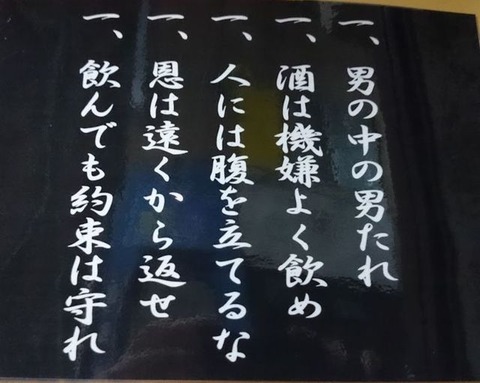 一、男の中の男たれ
一、酒は機嫌よく飲め
一、人には腹を立てるな
一、恩は遠くから返せ
一、飲んでも約束は守れ